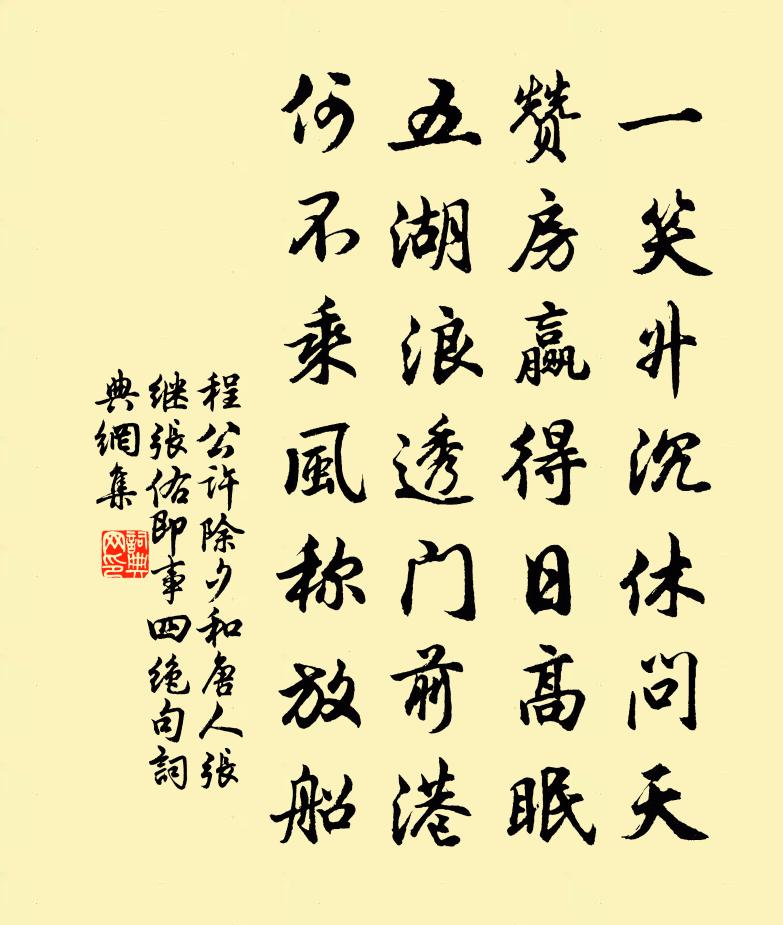 一笑升沉休问天
赞房赢得日高眠
五湖浪透门前港
何不乘風称放船
程公许除夕和唐人張
继張佑即事四絶句詞
典網集
詞典网印